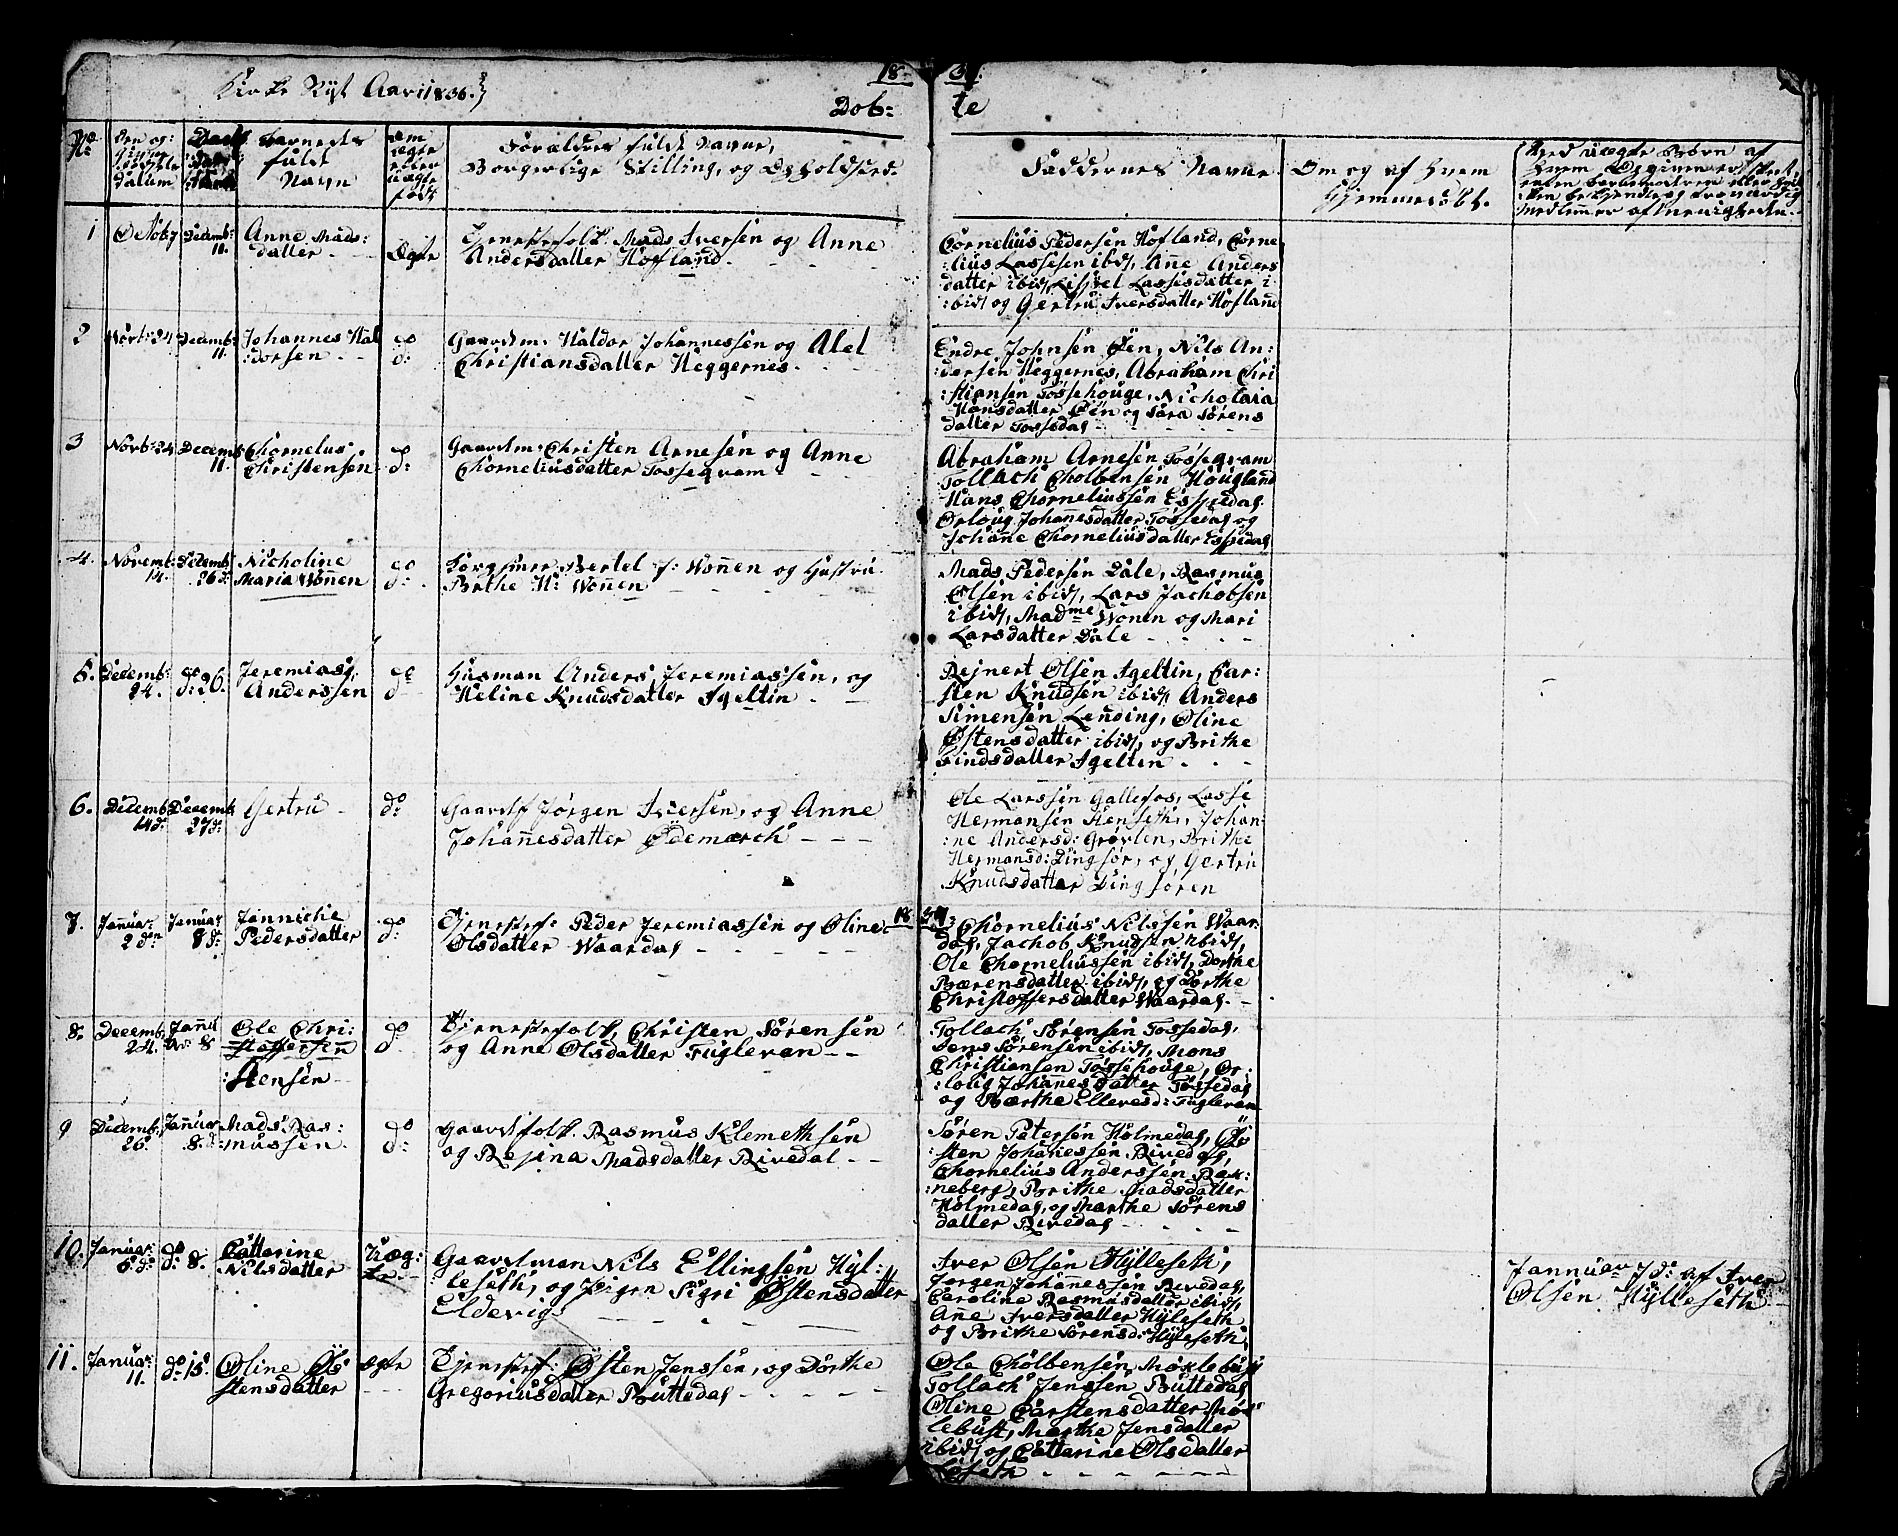 Kirke Nyt Aaret 1836.
18 37.
Döb: te
No
Den og:
datum
Barnets
fulde
Navn
Om
ægte
eller
uægte
född
Forældres fulde Navne,
Borgerlige Stilling, og Opholdsted.
Faddernes Navne
Om og af Hvem
Hjemmedöbt.
Ved uægte Börn af
Medlemmer af Menigheden.
1
Decemb:
11.
Anne Mads:
datter
Ægte
Tjenestefolk: Mads Iversen og Anne
Andersdatter Hofland.
Cornelius Pedersen Hofland, Corne
:lius Lassesen ibid, Anne Anders
datter ibid, Lassesdatter i
:bid, og Gertru Iversdatter Hofland
2
Novb: 24
Decemb:
11.
Johannes Hal
:dorsen
do
d:
Gaardm: Haldor Johannessen og Alel
Christiansdatter Heggernes.
Endre Johnsen Öen, Nils An:
:dersen Heggernes, Abraham Chri
:stiansen Tossehouge, Nicholaia
Hansdatter Öen og Sara Sörens
datter Tossedag
3
Novb: 24
Decemb
11.
Chornelus
Christensen
do
d:
Gaardm: Christen Arnesen og Anne
Chorneliusdatter Tosseqvam
Abraham Arnesen Tosseqvam
Tollach Cholbensen Hougland
Hans Chorneliussen Espedag.
Orloug Johannesdatter Tossedag og
Johane Chorneliusdatter Espedag
4.
Novemb:
14.
Decemb
26 d:
Nicholine
Maria Wonnen
do
d:
Sorgsmer Bertel J: Wonnen og Hustru
Brthe H: Wonnen
Mads Pedersen Dale, Rasmus
Olsen ibid, Lars Jachobsen
ibid, Madme Wonen og Mari
Larsdatter Dale
5.
Decemb:
24.
do 26.
Jeremias
Anderssen
do
d
Husman Anders Jeremiassen, og
Heline Knudsdatter Igeltin
Rejnert Olsen Igeltin, Car:
:sten Knudsen ibid, Anders
Simensen Lending, Oline
Östensdatter ibid, og Brithe
Findsdatter Igeltin
6.
Decemb
14 d:
Decemb
27 d:
Gertru
do
d:
Gaardf Jörgen Iversen, og Anne
Johannesdatter Ödemarch
Ole Larssen Gallefos, Lasse
Hermansen Henseth, Johan:
:ne Andersd: Grovlen, Brithe
Hermansd: Dingsör, og Gertru
Knudsdatter Dingsören
7.
Januar
2 den
Januar
8 d:
Jannichie
Pedersdatter
do
d:
Tjenestf: Peder Jeremiassen og Oline
Olsdatter Waardag
18 37:
Chornelius Nilssen Waar
dag, Jachob Knudsen ibid,
Ole Chorneliussen ibid, Dorthe
Bærensdatter ibid, og Dorthe
Christoffersdatter Waardag.
8.
Decemb
24.
8
Ole Chri:
:stoffersen
:Hensen
do
d:
Tjenestefolk, Christen Sörensen
og Anne Olsdatter Fugleran
Tollach Sörensen Tossedag,
Jens Sörensen ibid, Mons
Christiansen Tossehouge, Or:
:loug Johannesdatter Tossedag
og Marthe Elleresd: Fugleran
9
Decemb
26
Januar
8. d
Mads Ras:
:mussen
do
d:
Gaardfolk. Rasmus Klemethsen
og Regina Madsdatter Rivedal
Sören Petersen Holmedag, Ös
:sten Johanessen Rivedag,
Chornelius Anderssen Bak:
:neberg, Brithe Madsdatter
Holmedag, og Marthe Sörens
datter Rivedag
10.
Januar
6 d:
do 8.
Cattarine
Nilsdatter
Uæg:
te
Gaardman Nils Ellingsen Hyl:
:leseth, og Pigen Sigri Östensdatter
Eldevig
Iver Olsen Hylleseth,
Jorgen Johanessen Rivedag,
Caroline Rasmusdatter ibid,
Ane Iversdatter Hylleseth
og Brithe Sörensd: Hylleseth,
Januar 7 d: af Iver
Olsen Hylleseth
11.
Januar
11.
do 15
Oline Ös
stensdatter
Ægte
Tjenestf: Östen Jenssen, og Dorthe
Gregoriusdatter Buttedag
Ole Cholbensen Moklebust
Tollach Jenssen Buttedag
Oline Carstensdatter Mok
lebust, Marthe Jensdatter
ibid, og Cattarine Olsdatter